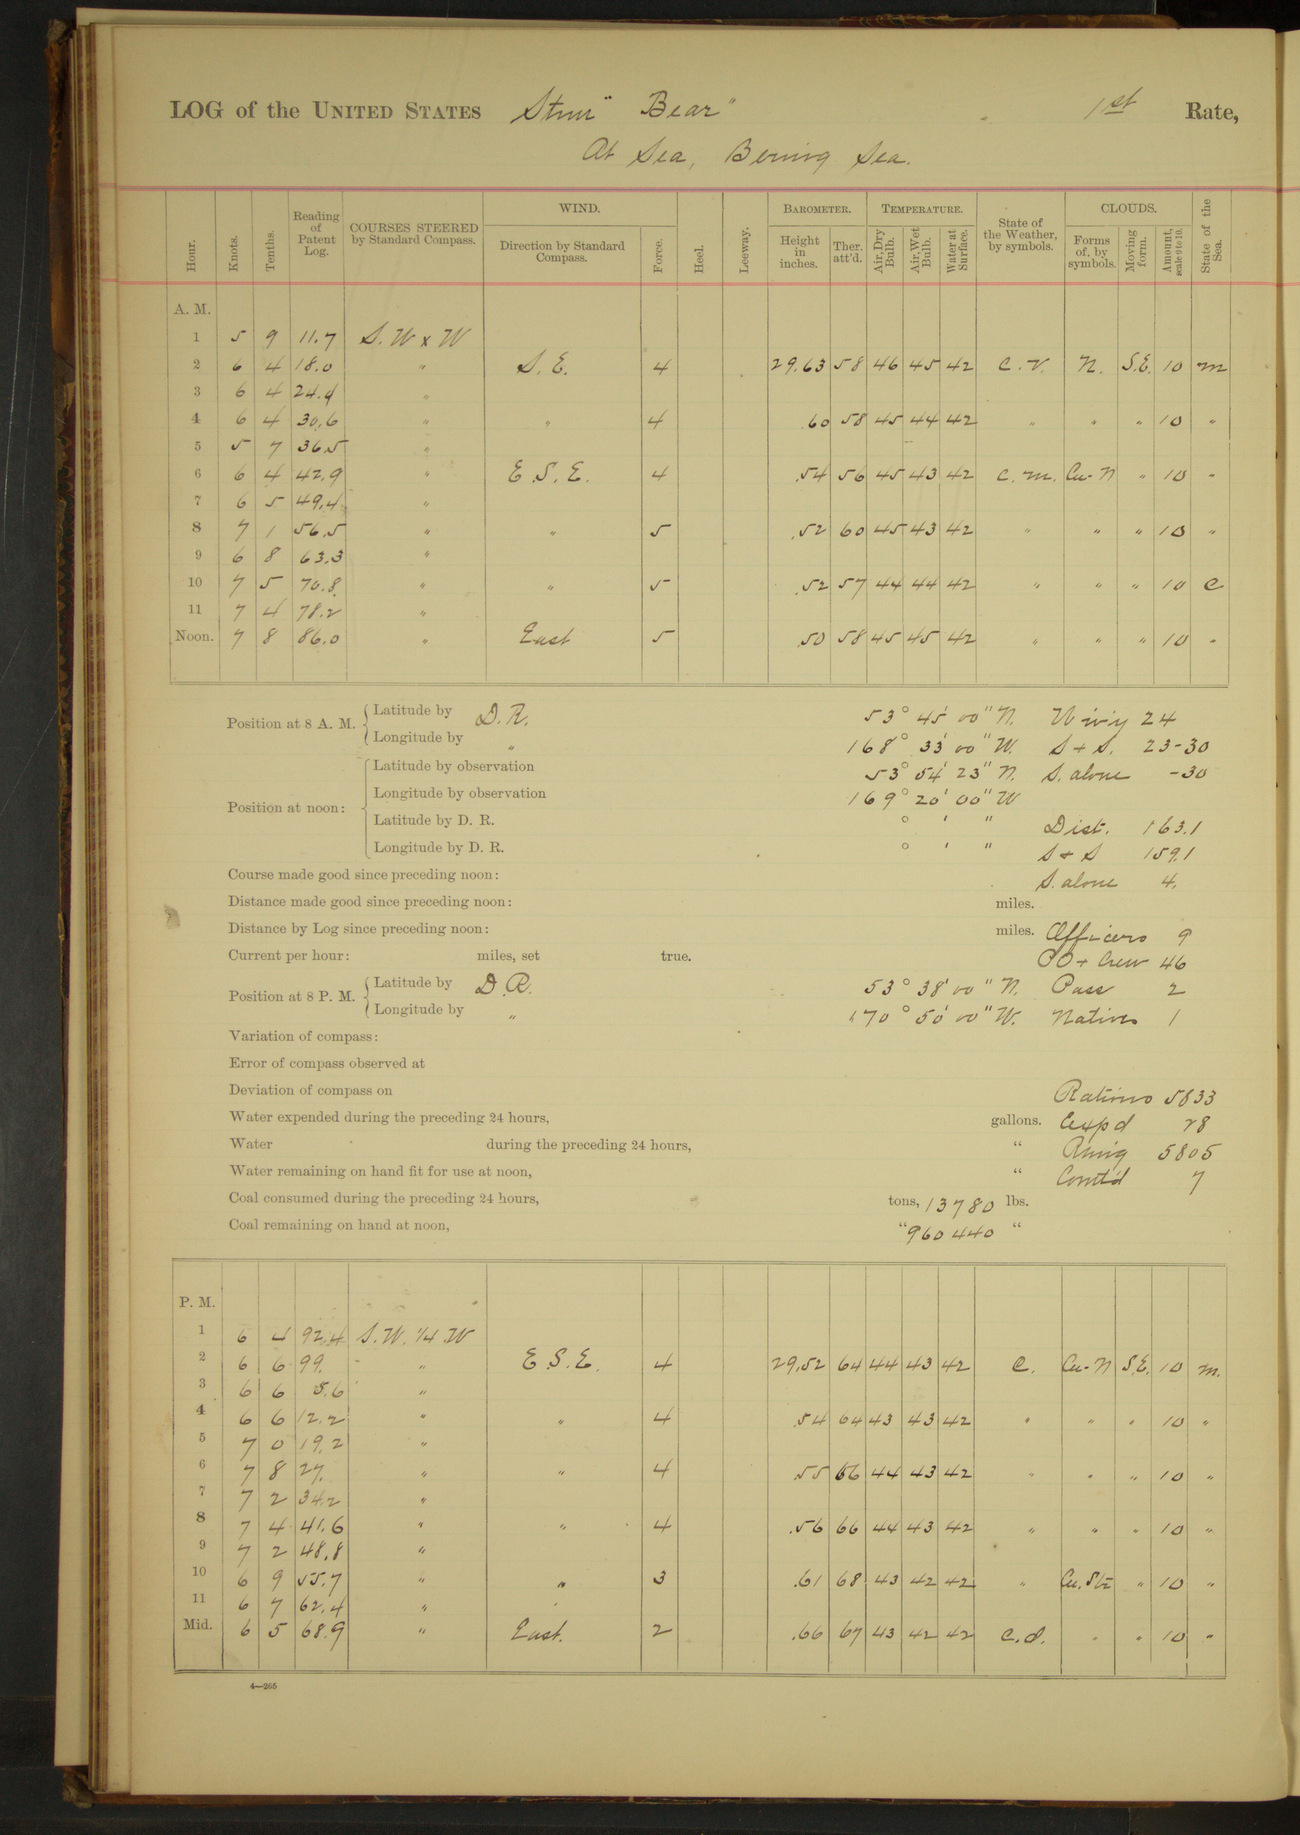 LOG of the UNITED STATES Stmr "Bear" 1st Rate,
At Sea, Bering Sea.
Hour. Knots. Tenths. Reading of Patent Log. COURSES STEERED by Standard Compass. WIND. Direction by Standard Compass. Force. Heel. Leeway. BAROMETER. Height in inches. Ther. att'd. TEMPERATURE. Air, Dry Bulb. Air, Wet Bulb. Water at Surface. State of the Weather, by symbols. CLOUDS. Forms of, by symbols. Moving form. Amount, scale 0 to 10. State of the Sea.
A. M.
1 5 9 11.7 S. W x W
2 6 4 18.0 " S. E. 4 29.63 58 46 45 42 C. V. N. S.E. 10 m
3 6 4 24.4 "
4 6 4 30.6 " " 4 .60 58 45 44 42 " " " 10 "
5 5 7 36.5 "
6 6 4 42.9 " E. S. E. 4 .54 56 45 43 42 C. m. Cu-N " 10 "
7 6 5 49.4 "
8 7 1 56.5 " " 5 .52 60 45 43 42 " " " 10 "
9 6 8 63.3 "
10 7 5 70.8 " " 5 .52 57 44 44 42 " " " 10 C
11 7 4 78.2 "
Noon. 7 8 86.0 " East 5 .50 58 45 45 42 " " " 10 "
Position at 8 A. M. Latitude by D. R. 53° 45' 00" N. 24
Longitude by " 168° 33' 00" W. S & S. 23-30
Position at noon: Latitude by observation 53° 54' 23" N. S. alone -30
Longitude by observation 169° 20' 00" W
Latitude by D. R. ° ' " Dist. 163.1
Longitude by D. R. ° ' " S & S 159.1
Course made good since preceding noon: S. alone 4.
Distance made good since preceding noon: miles.
Distance by Log since preceding noon: miles. Officers 9
Current per hour: miles, set true. PO & Crew 46
Position at 8 P. M. Latitude by D. R. 53° 38' 00" N. Pass 2
Longitude by " 170° 50' 00" W. Natives 1
Variation of compass:
Error of compass observed at
Deviation of compass on Rations 5833
Water expended during the preceding 24 hours, gallons. Expd 28
Water during the preceding 24 hours, " Rmng 5805
Water remaining on hand fit for use at noon, " Comt'd 7
Coal consumed during the preceding 24 hours, tons, 13780 lbs.
Coal remaining on hand at noon, " 960440 "
P. M.
1 6 4 92.4 S. W. 1/4 W
2 6 6 99. " E. S. E. 4 29.52 64 44 43 42 C. Cu-N S.E. 10 m.
3 6 6 5.6 "
4 6 6 12.2 " " 4 .54 64 43 43 42 " " " 10 "
5 7 0 19.2 "
6 7 8 27. " " 4 .55 66 44 43 42 " " " 10 "
7 7 2 34.2 "
8 7 4 41.6 " " 4 .56 66 44 43 42 " " " 10 "
9 7 2 48.8 "
10 6 9 55.7 " " 3 .61 68 43 42 42 " Cu. Str " 10 "
11 6 7 62.4 "
Mid. 6 5 68.9 " East. 2 .66 67 43 42 42 C. d. " " 10 "
4—265